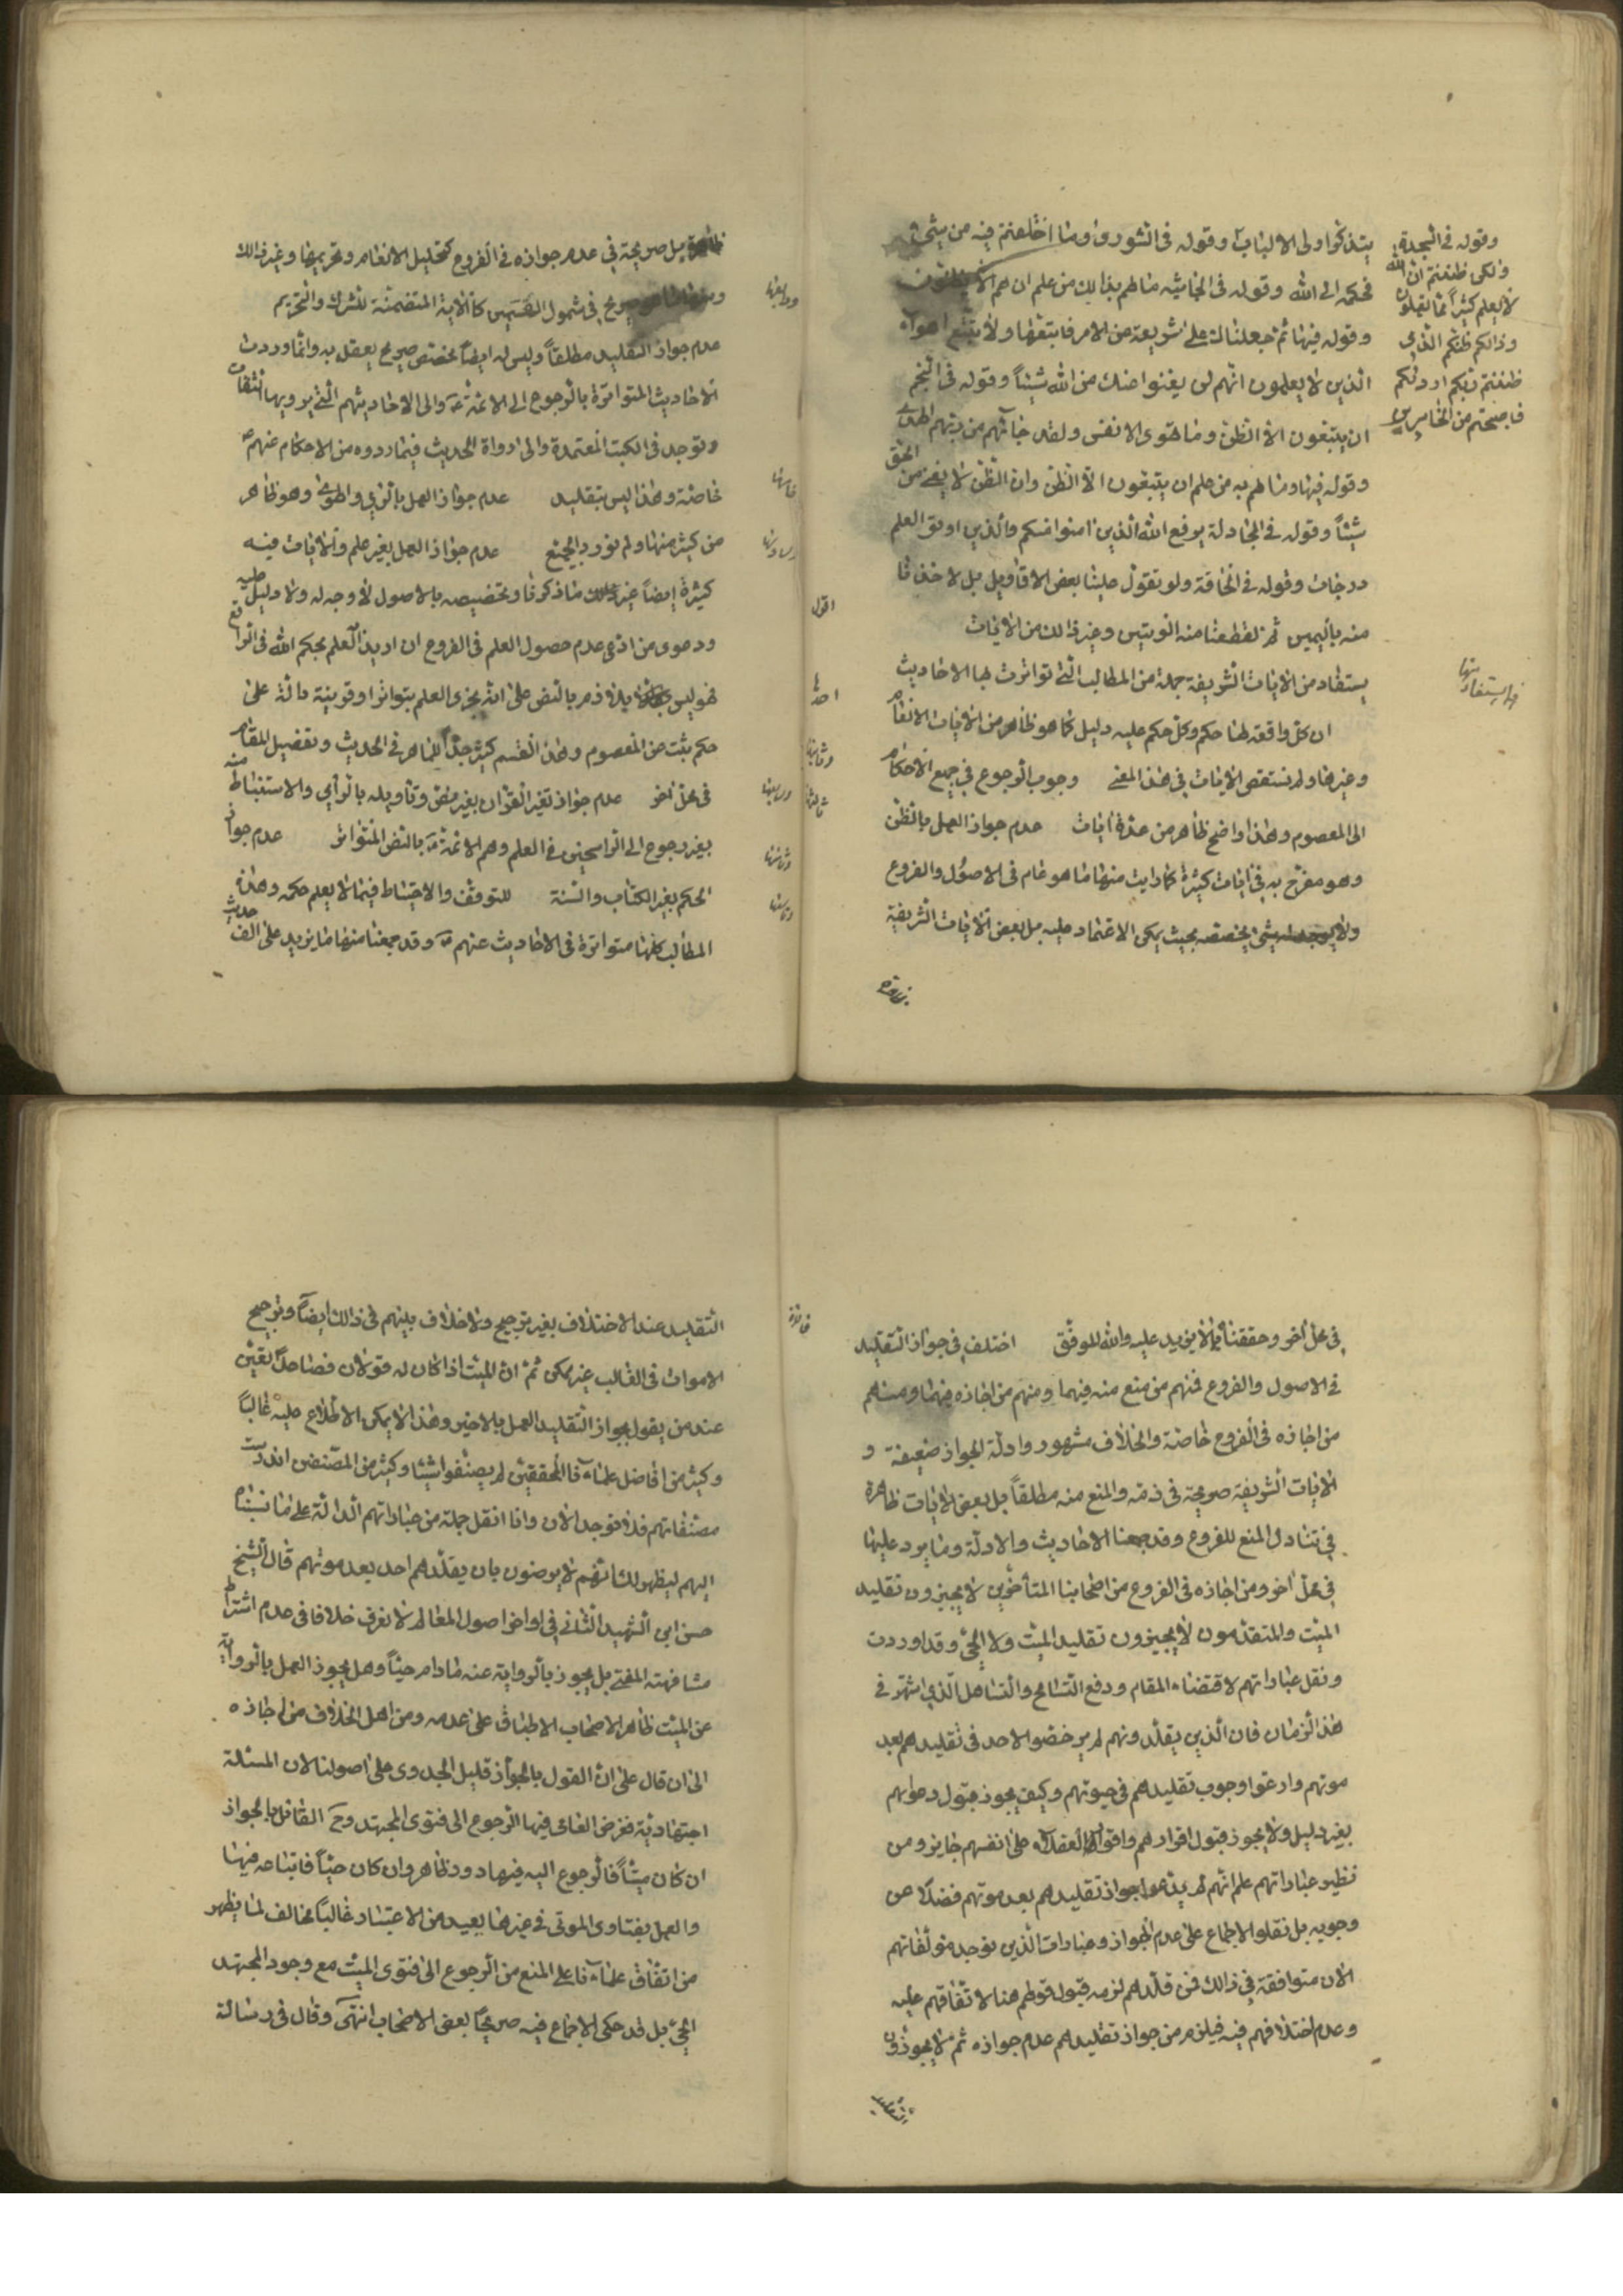 يتذكروا اولى الالباب وقوله فى الشورى وما اختلفتم فيه من شئ
فحكمه الى الله وقوله فى الجاثيه مالهم بذالك من علم ان هم الا يظنون
وقوله فيها ثم جعلناك على شريعة من الامر فاتبعها ولا تتبع اهواء
الذين لا يعلمون انهم لن يغنوا عنك من الله شيئاً وقوله فى النجم
ان يتبعون الا الظن وما تهوى الانفس ولقد جائهم من ربهم الهدى
وقوله فيها ومالهم به من علم ان يتبعون الا الظن وان الظن لا يغنى من الحق
شيئاً وقوله فى المجادلة يرفع الله الذين امنوا منكم والذين اوتو العلم
درجات وقوله فى الحاقة ولو تقول علينا بعض الاقاويل لاخذنا
منه باليمين ثم لقطعنا منه الوتين وغير ذالك من الايات
اقول
يستفاد من الايات الشريفة جملة من المطالب التى تواترت بها الاحاديث
احدها
ان كل واقعة لها حكم وكل حكم عليه دليل كما هو ظاهر من الايات الانعام
وغيرها ولم نستقص الايات فى هذا المعنى وجوب الرجوع فى جميع الاحكام
وثانيها
الى المعصوم وهذا واضح ظاهر من عدة ايات عدم جواز العمل بالظن
ثالثها
وهو مصرح به فى ايات كثيرة كما رايت منها ما هو عام فى الاصول والفروع
ولا يوجد شئ يخصصه بحيث يمكن الاعتماد عليه بل بعض الايات الشريفة
وقوله فى السجدة
ولكن ظننتم ان الله
لا يعلم كثيراً مما تعملون
وذالكم ظنكم الذى
ظننتم بربكم ارديكم
فاصبحتم من الخاسرين
ظاهرة بل صريحة فى عدم جوازه فى الفروع كتحليل الانعام وتحريمها وغير ذالك
ومنها ما هو صريح فى شمول القسمين كالاية المتضمنة للشرك والتحريم
ورابعها
عدم جواز التقليد مطلقاً وليس له ايضاً مخصص صريح يعقل به وانما وردت
الاحاديث المتواترة بالرجوع الى الائمة ع والى الاحاديثهم التى يرويها الثقات
وتوجد فى الكتب المعتمدة والى رواة الحديث فيما رووه من الاحكام عنهم ع
خاصة وهذا ليس بتقليد عدم جواز العمل بالراي والهوى وهو ظاهر
خامسها
من كثير منها ولم نورد الجميع عدم جواز العمل بغير علم والايات فيه
وسادسها
كثيرة ايضاً غير ما ذكرنا وتخصيصه بالاصول لا وجه له ولا دليل عليه
ودعوى من ادعى عدم حصول العلم فى الفروع ان اريد العلم بحكم الله فى الواقع
فهو ليس بلازم بالنص على انه يجزى العلم بتواتر او قرينة دالة على
حكم ثبت عن المعصوم وهذا القسم كثير جداً للماهر فى الحديث وتفصيل المقام
فى محل آخر عدم جواز تفسير القرآن بغير نص وتاويله بالرأي والاستنباط منه
وسابعها
بغير رجوع الى الراسخين فى العلم وهم الائمة ع بالنص المتواتر عدم جواز
وثامنها
الحكم بغير الكتاب والسنة للتوقف والاحتياط فيما لا يعلم حكمه وهذه
وتاسعها
المطالب كلها متواترة فى الاحاديث عنهم ع وقد جمعنا منها ما يزيد على الف حديث
فى محل آخر وحققنا بما لا يزيد عليه والله الموفق اختلف فى جواز التقليد
فى الاصول والفروع فمنهم من منع منه فيهما ومنهم من اجازه فيهما ومنهم
من اجازه فى الفروع خاصة والخلاف مشهور وادلة الجواز ضعيفة و
الايات الشريفة صريحة فى ذمه والمنع منه مطلقاً بل بعض الايات ظاهرة
فى تناول المنع للفروع وقد جمعنا الاحاديث والادلة وما يرد عليها
فى محل آخر ومن اجازه فى الفروع من اصحابنا المتأخرين لا يجيزون تقليد
الميت والمتقدمون لا يجيزون تقليد الميت ولا الحي وقد اوردت
ونقل عباراتهم لاقتضاء المقام ودفع التسامح والتساهل الذي اشتهر فى
هذا الزمان فان الذين يقلدونهم لم يرخصوا لاحد فى تقليدهم بعد
موتهم وادعوا وجوب تقليدهم فى حيوتهم وكيف يجوز قبول دعواهم
بغير دليل ولا يجوز قبول اقرارهم واقرار العقلاء على انفسهم جايز ومن
نظر عباراتهم علم انهم لم يدعوا جواز تقليدهم بعد موتهم فضلاً عن
وجوبه بل نقلوا الاجماع على عدم الجواز وعبارات الذين توجد مؤلفاتهم
الان متوافقة فى ذالك فمن قلدهم لزمه قبول قولهم هنا لاتفاقهم عليه
وعدم اختلافهم فيه فيلزم من جواز تقليدهم عدم جوازه ثم لا يجوزون
التقليد
فائدة
التقليد عند الاختلاف بغير ترجيح ولا خلاف بينهم فى ذالك ايضاً وترجيح
الاموات فى الغالب غير ممكن ثم ان الميت اذا كان له قولان فصاعداً تعين
عند من يقول بجواز التقليد العمل بالاخير وهذا لا يمكن الاطلاع عليه غالباً
وكثير من افاضل علمائنا المحققين لم يصنفوا شيئا وكثير من المصنفين اندرست
مصنفاتهم فلا توجد الان وانا انقل جملة من عباراتهم الدالة على ما نسبنا
اليهم ليظهر لك انهم لا يرضون بان يقلدهم احد بعد موتهم قال الشيخ
حسن ابن الشهيد الثانى فى اواخر اصول المعالم لا نعرف خلافا فى عدم اشتراط
مشافهة المفتى بل يجوز بالرواية عنه مادام حياً وهل يجوز العمل بالرواية
عن الميت ظاهر الاصحاب الاطباق على عدمه ومن اهل الخلاف من اجازه
الى ان قال على ان القول بالجواز قليل الجدوى على اصولنا لان المسئلة
اجتهادية ففرض العامى فيها الرجوع الى فتوى المجتهد وح القائل بالجواز
ان كان ميتاً فالرجوع اليه فيها دور ظاهر وان كان حياً فاتباعه فيها
والعمل بفتاوى الموتى فى غيرها بعيد من الاعتبار غالباً مخالف لما يظهر
من اتفاق علمائنا على المنع من الرجوع الى فتوى الميت مع وجود المجتهد
الحي بل قد حكى الاجماع فيه صريحاً بعض الاصحاب انتهى وقال فى رسالة